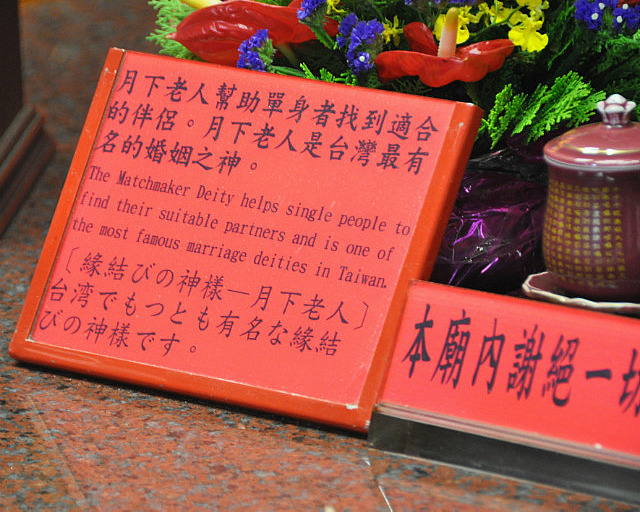 月下老人幫助單身者找到適合
的伴侶。月下老人是台灣最有
名的婚姻之神。
The Matchmaker Deity helps single people to
find their suitable partners and is one of
the most famous marriage deities in Taiwan.
〔縁結びの神様—月下老人〕
台湾でもつとも有名な縁結
びの神様です。
本廟內謝絕一切